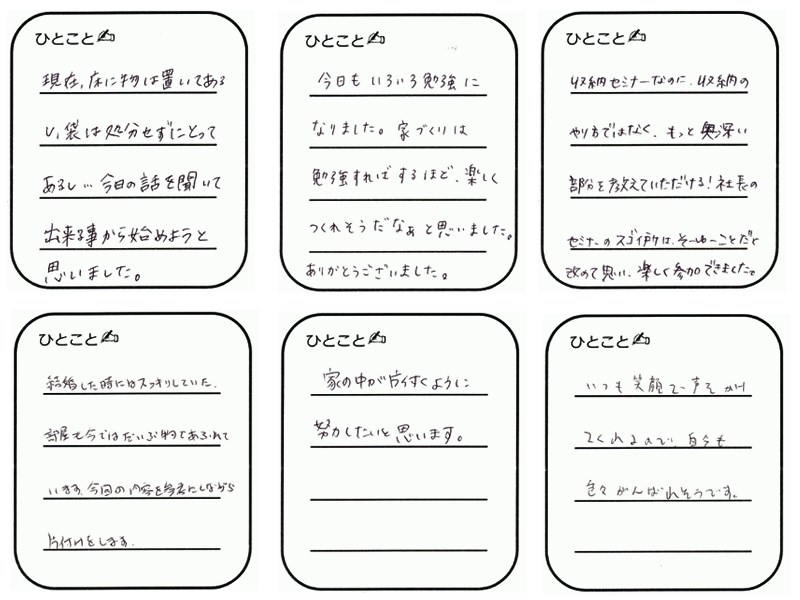 ひとこと
現在、床に物は置いてある
し、袋は処分せずにとって
あるし… 今日の話を聞いて
出来る事から始めようと
思いました。
ひとこと
今日もいろいろ勉強に
なりました。家づくりは
勉強すればするほど、楽しく
つくれそうだなぁと思いました。
ありがとうございました。
ひとこと
収納セミナーなのに、収納の
やり方ではなく、もっと奥深い
部分を教えていただける!社長の
セミナーのスゴイ所は、そーゆーことだと
改めて思い、楽しく参加できました。
ひとこと
結婚した時にはスッキリしていた、
部屋も今ではだいぶ物であふれて
います。今回の内容を参考にしながら
片付けをします。
ひとこと
家の中が片付くように
努力したいと思います。
ひとこと
いつも笑顔で声をかけ
てくれるので、自分も
色々がんばれそうです。